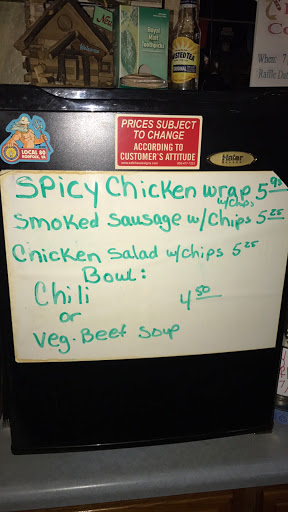 Royal
Mint
Toothpicks
TWISTED TEA
ORIGINAL
When: 7
Raffle
LOCAL 80
NORFOLK, VA
PRICES SUBJECT
TO CHANGE
ACCORDING TO
CUSTOMER'S ATTITUDE
Haier
Spicy Chicken wrap 5.95
w/chips
Smoked sausage w/chips 5.25
Chicken Salad w/chips 5.25
Bowl:
Chili 4.50
or
Veg. Beef Soup